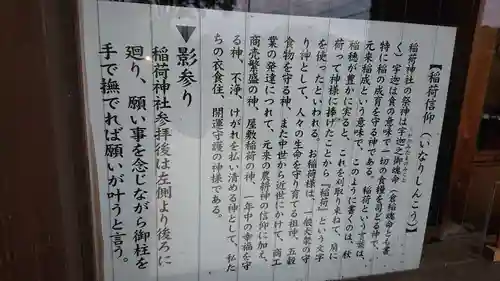 【稲荷信仰(いなりしんこう)】
稲荷神社の祭神は宇迦之御魂命(倉稲魂命とも書
く)宇迦は食の意味で一切の食糧を司どる神で、
特に稲の成育を守る神である。稲荷という言葉は、
元来稲成という意味で、このように書くのは、秋
稲穂が豊かに実ると、これを刈取り束ねて、肩に
荷って神様に捧げたことから『稲荷』という文字
を使ったといわれる。お稲荷様は、一般大衆の守
り神として、人々の生命を守り育てる祖神、五穀
食物を守る神、また中世から近世にかけて、商工
業の発達につれて、元来の農耕神の信仰に加え、
商売繁盛の神、屋敷稲荷の神、一年中の幸福を守
る神、不浄、けがれを払い清める神として、私た
ちの衣食住、開運守護の神様である。
▼影参り
稲荷神社参拝後は左側より後ろに
廻り、願い事を念じながら御柱を
手で撫でれば願いが叶うと言う。